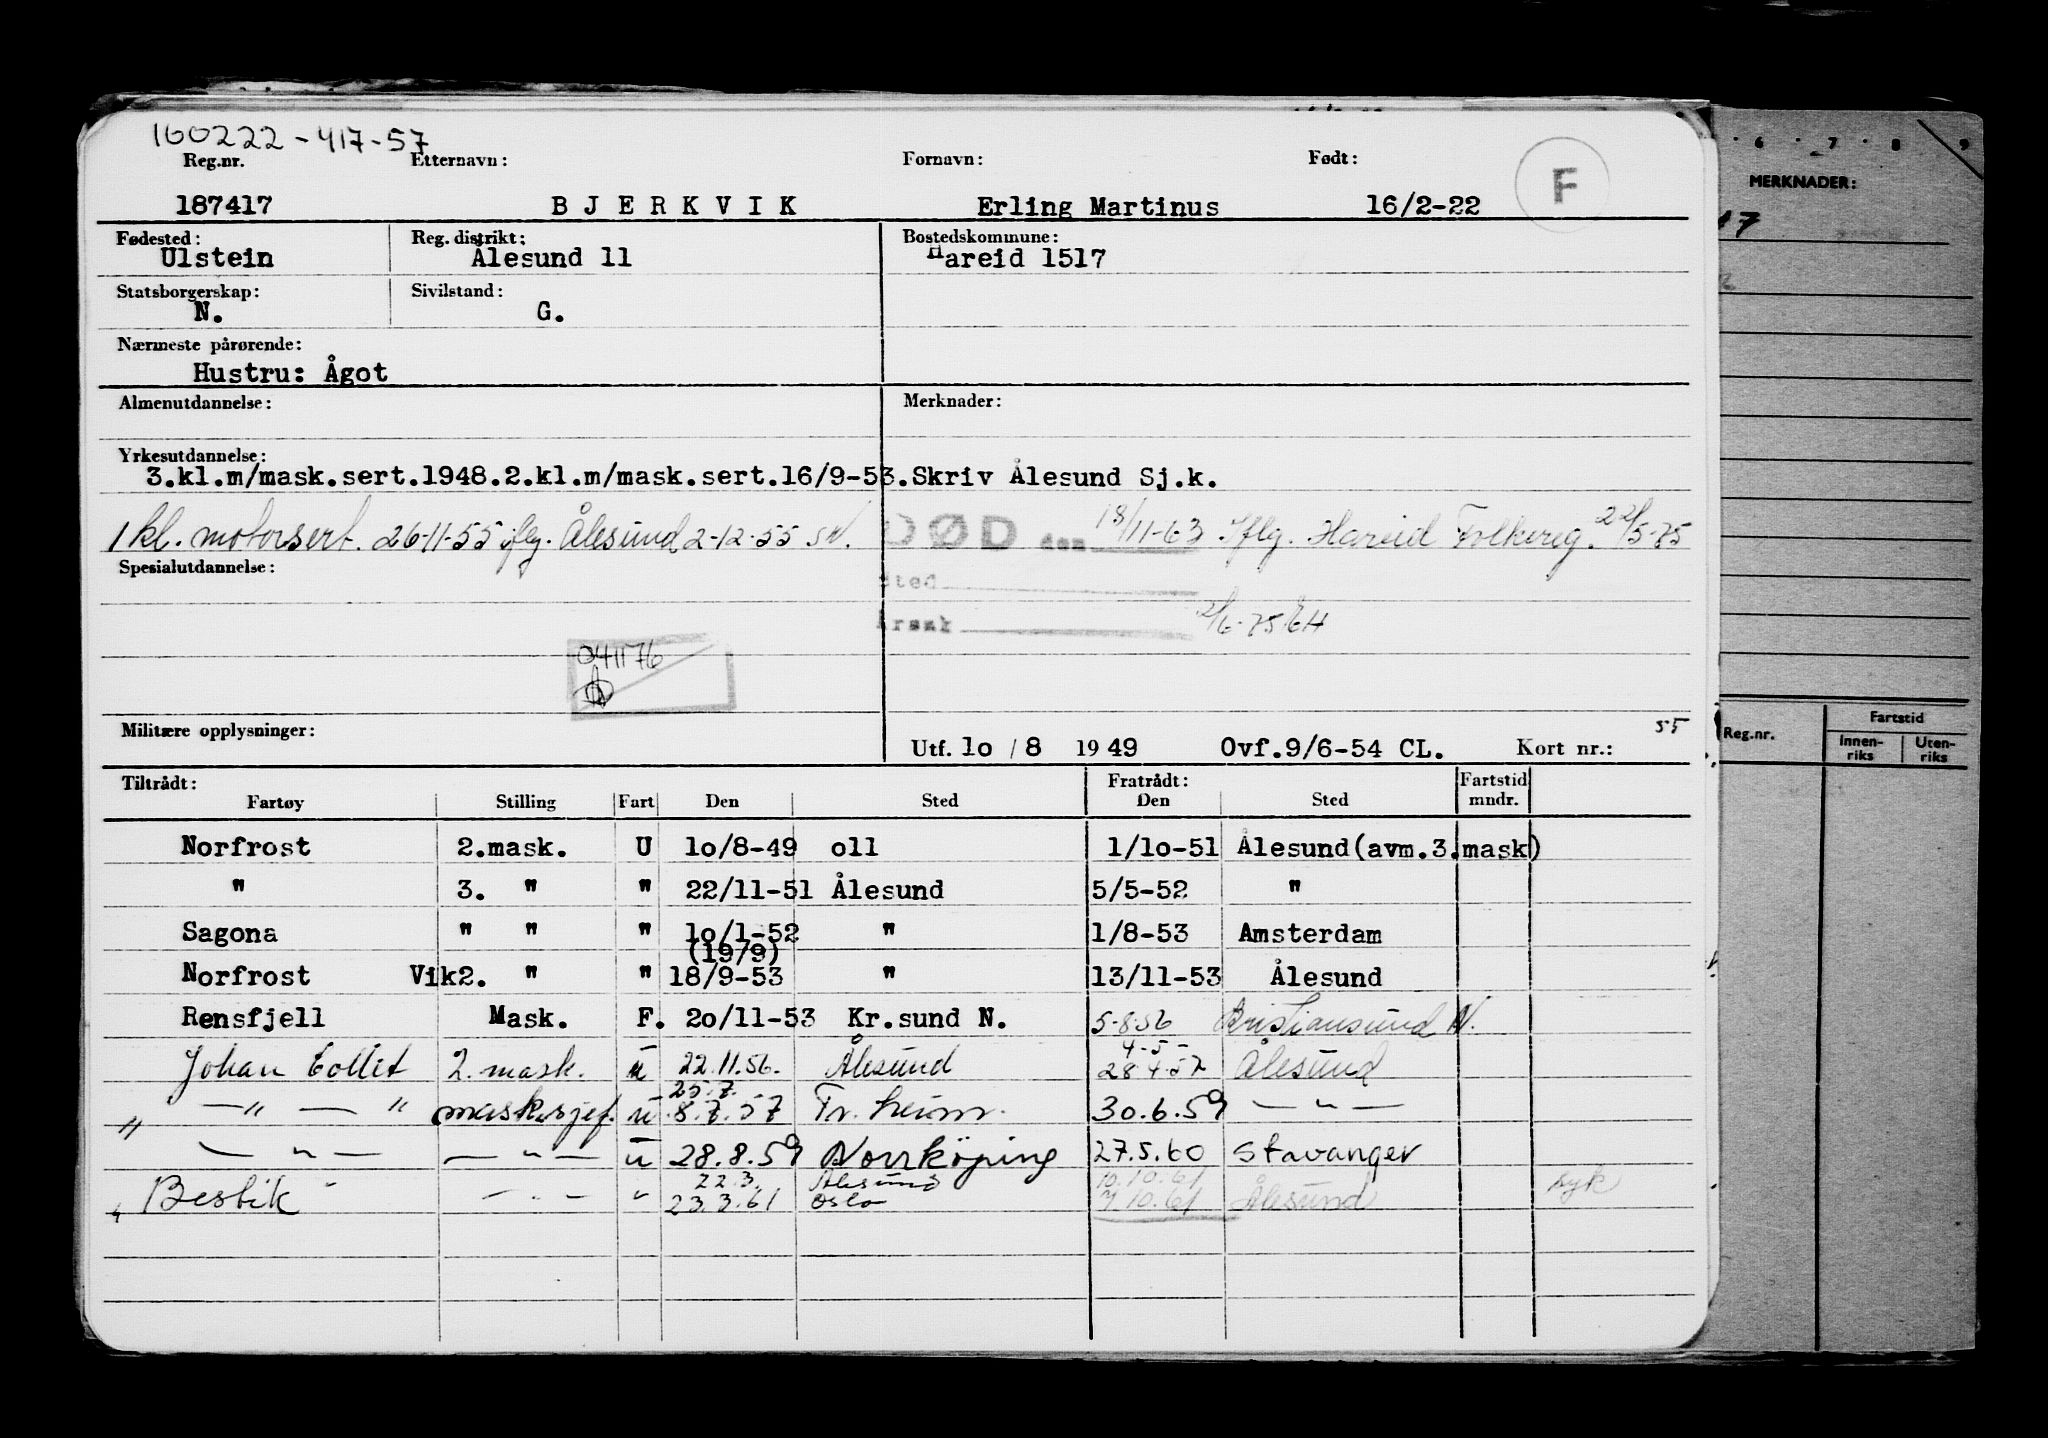 160222-417-57
Reg.nr. Etternavn: Fornavn: Født:
187417 BJERKVIK Erling Martinus 16/2-22 F
Fødested: Reg. distrikt: Bostedskommune:
Ulstein Ålesund 11 Hareid 1517
Statsborgerskap: Sivilstand:
N. G.
Nærmeste pårørende:
Hustru: Ågot
Almenutdannelse: Merknader:
Yrkesutdannelse:
3.kl.m/mask.sert.1948.2.kl.m/mask.sert.16/9-53.Skriv Ålesund Sj.k.
1 kl. motorsert. 26-11-55 iflg. Ålesund 2-12-55 DØD den 18/11-63 Iflg. Hareid Folkereg. 22/5-75
Spesialutdannelse: sted
årsak 2/6-75
041176
Militære opplysninger: Utf. 1o / 8 19 49 Ovf.9/6-54 CL. Kort nr.: 55
Tiltrådt: Fratrådt: Fartstid
Fartøy Stilling Fart Den Sted Den Sted mndr.
Norfrost 2.mask. U 1o/8-49 oll 1/1o-51 Ålesund(avm.3.mask)
" 3. " " 22/11-51 Ålesund 5/5-52 "
Sagona " " " 1o/1-52 " 1/8-53 Amsterdam
(19/9)
Norfrost Vik2. " " 18/9-53 " 13/11-53 Ålesund
Rensfjell Mask. F. 2o/11-53 Kr.sund N. 5-8-56 Kristiansund N.
4-5-
Johan Collet 2. mask. u 22.11.56. Ålesund 28 4.57 Ålesund
25.7.
" — " — " maskusjef. u 8.7.57 Tr.heim. 30.6.59 — " —
— " — — " — u 28.8.59 Norrköping 27.5.60 Stavanger
22.3. Ålesund 10.10.61
" Besbik — " — " 23.3.61 Oslo 7.10.61 Ålesund syk
6 7 8 9
MERKNADER:
17
Reg.nr. Fartstid
Innen-riks Uten-riks